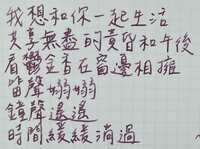 我想和你一起生活
共享無盡的黃昏和午後
看鬱金香在窗邊相擁
笛聲嫋嫋
鐘聲遙遙
時間緩緩淌過